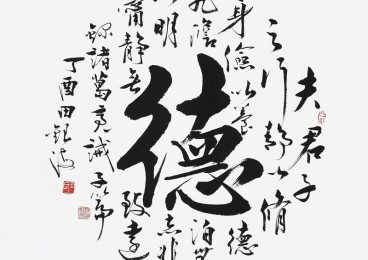 夫君子
之行靜以脩
身儉以養德
非澹泊無
以明志非
寧靜無以致遠
德
錄諸葛亮誡子篇
丁酉田
波